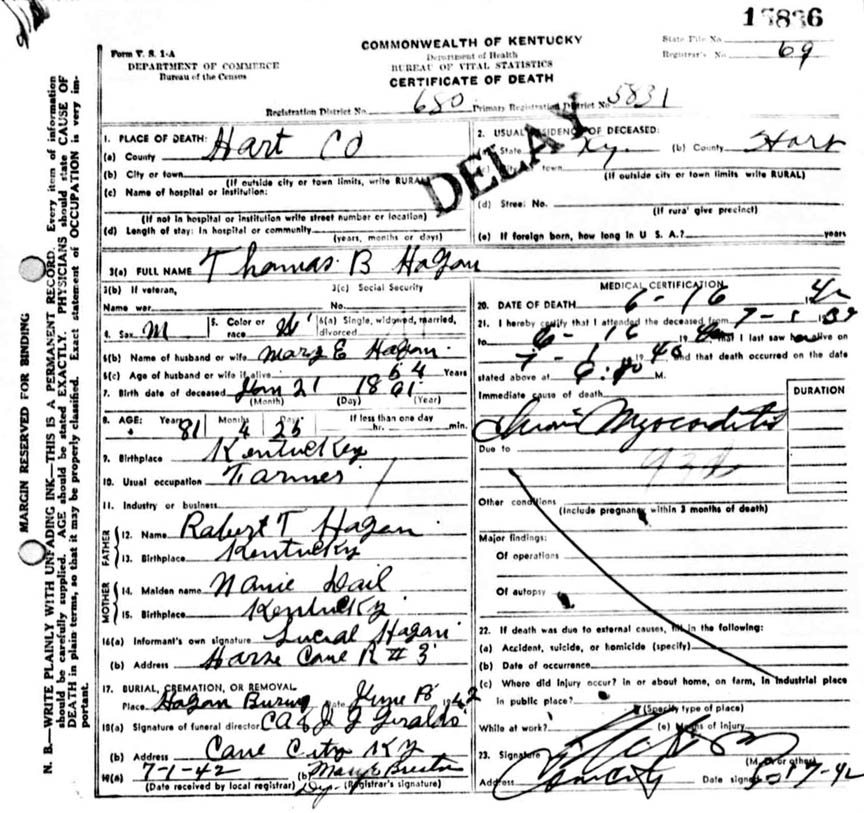 15836
COMMONWEALTH OF KENTUCKY
Department of Health
BUREAU OF VITAL STATISTICS
CERTIFICATE OF DEATH
Form V. S. 1-A
DEPARTMENT OF COMMERCE
Bureau of the Census
State File No.
Registrar's No. 69
Registration District No. 680 Primary Registration District No. 5831
DELAY
MARGIN RESERVED FOR BINDING
N. B.—WRITE PLAINLY WITH UNFADING INK—THIS IS A PERMANENT RECORD. Every item of information
should be carefully supplied. AGE should be stated EXACTLY. PHYSICIANS should state CAUSE OF
DEATH in plain terms, so that it may be properly classified. Exact statement of OCCUPATION is very im-
portant.
1. PLACE OF DEATH:
(a) County Hart Co
(b) City or town
(If outside city or town limits, write RURAL)
(c) Name of hospital or institution:
(If not in hospital or institution write street number or location)
(d) Length of stay: In hospital or community
(years, months or days)
2. USUAL RESIDENCE OF DECEASED:
(a) State Ky. (b) County Hart
(c) City or town
(If outside city or town limits write RURAL)
(d) Street No.
(If rural give precinct)
(e) If foreign born, how long in U. S. A.? years
3(a) FULL NAME Thomas B Hagan
3(b) If veteran, 3(c) Social Security
Name war No.
4. Sex M 5. Color or race W 6(a) Single, widowed, married, divorced
6(b) Name of husband or wife Mary E Hagan
6(c) Age of husband or wife if alive 64 Years
7. Birth date of deceased Jan 21 18 61
(Month) (Day) (Year)
8. AGE: Years 81 Months 4 Days 25 If less than one day hr. min.
9. Birthplace Kentuckey
10. Usual occupation Farmer
11. Industry or business
FATHER
12. Name Robert T Hagan
13. Birthplace Kentucky
MOTHER
14. Maiden name Nanie Dail
15. Birthplace Kentucky
16(a) Informant's own signature Hagan
(b) Address Horse Cave R # 3
17. BURIAL, CREMATION, OR REMOVAL
Place Hagan Date June 1942
18(a) Signature of funeral director
(b) Address Cave City Ky
19(a) 7-1-42 (b)
(Date received by local registrar) Dep. (Registrar's signature)
MEDICAL CERTIFICATION
20. DATE OF DEATH 6-16 1942
21. I hereby certify that I attended the deceased from 7-1-
to 6-16 19 that I last saw alive on
7-1 19 40 and that death occurred on the date
stated above at M.
Immediate cause of death
DURATION
Myocarditis
Due to
Other conditions
(Include pregnancy within 3 months of death)
Major findings:
Of operations
Of autopsy
22. If death was due to external causes, fill in the following:
(a) Accident, suicide, or homicide (specify)
(b) Date of occurrence
(c) Where did injury occur? in or about home, on farm, in industrial place
in public place?
(Specify type of place)
While at work? (e) Means of injury
23. Signature (M. D. or other)
Address Date signed